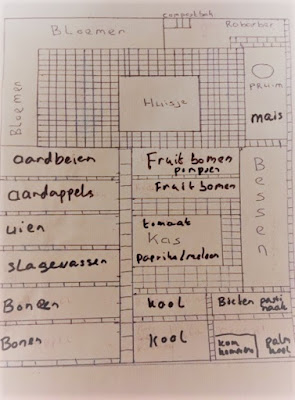 compostbak
Bloemen
Rabarber
Bloemen
Huisje
PRUIM
mais
aardbeien
Fruit bomen
pompoen
aardappels
Fruit bomen
Bessen
uien
tomaat
Kas
paprika/meloen
slagewassen
Bonen
kool
Bieten
pasti
naak
Bonen
kool
kom
kommers
palm
kool